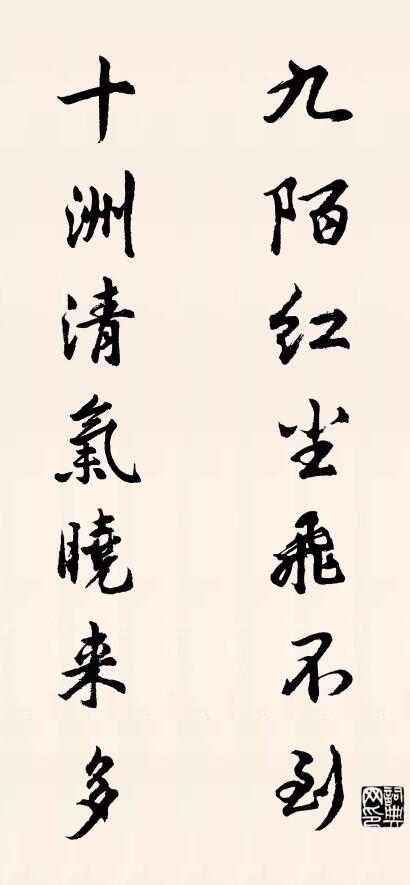 九陌红尘飞不到
十洲清氣曉来多
詞典网印